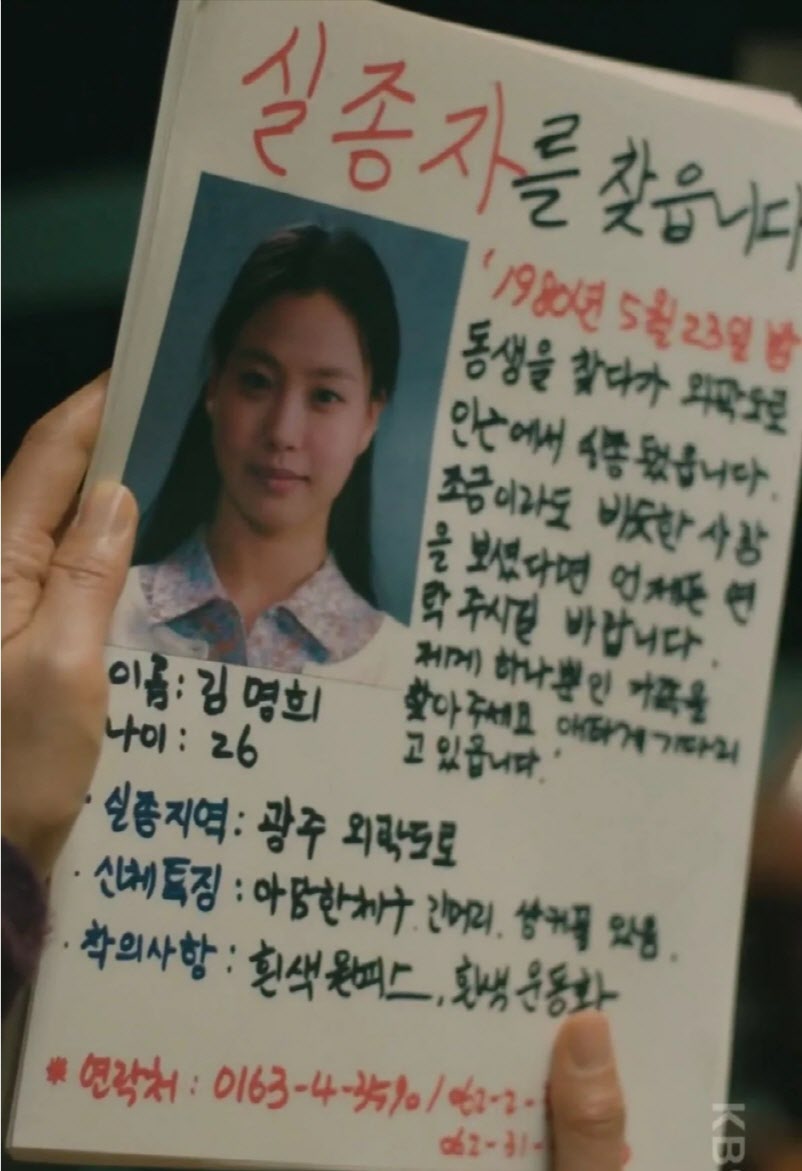 실종자를 찾읍니다
'1980년 5월 23일 밤
동생을 찾다가 외곽도로
인근에서 실종됐읍니다.
조금이라도 비슷한 사람
을 보셨다면 언제든 연
락 주시길 바랍니다.
제게 하나뿐인 가족을
찾아주세요 애타게 기다리
고 있읍니다.
이름: 김명희
나이: 26
· 실종지역: 광주 외곽도로
· 신체특징: 아담한체구. 긴머리. 쌍커풀 있음.
· 착의사항: 흰색원피스, 흰색 운동화
* 연락처: 0163-4-3590/062-2-
062-31-
KB